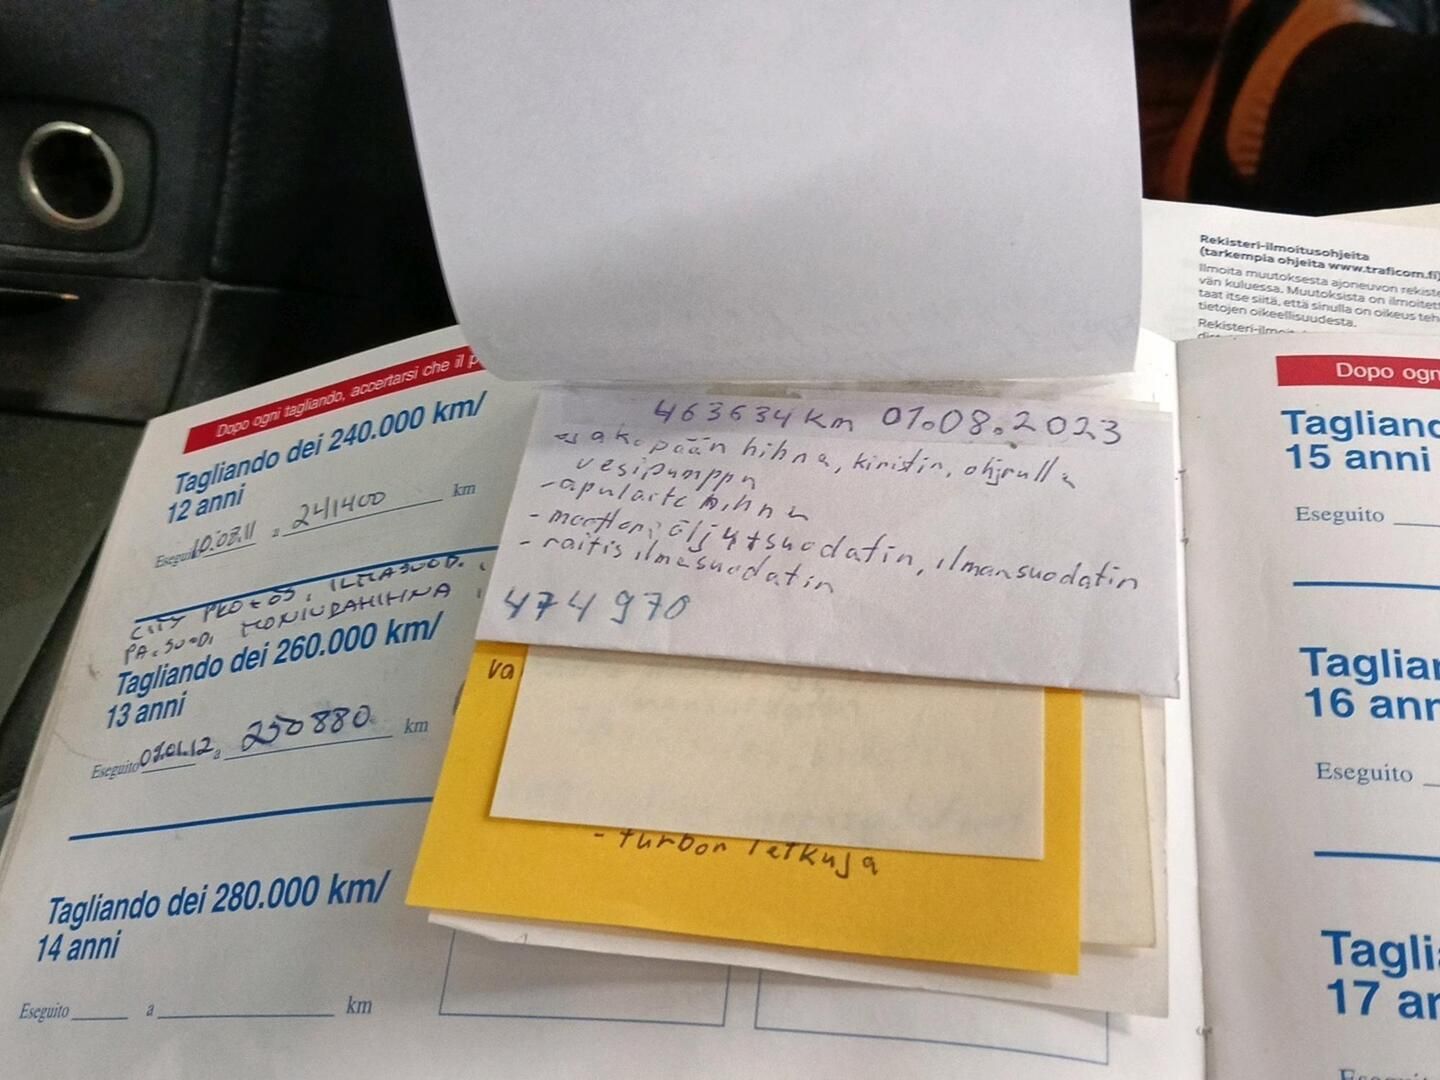 Rekisteri-ilmoitusohjeita
(tarkempia ohjeita www.traficom.fi)
Ilmoita muutoksesta ajoneuvon rekiste
vän kuluessa. Muutoksista on ilmoitett
taat itse siitä, että sinulla on oikeus teh
tietojen oikeellisuudesta.
Rekisteri-ilmoit
Dopo ogni tagliando, accertarsi che il p
Tagliando dei 240.000 km/
12 anni
Eseguito 10.03.11 a 241400 km
CITY PRO + ÖS. ILMASUOD.
PA.SUOD. MONIURAHIHNA
Tagliando dei 260.000 km/
13 anni
Eseguito 07.01.12 a 250880 km
Tagliando dei 280.000 km/
14 anni
Eseguito a km
463634 km 01.08.2023
jakopään hihna, kiristin, ohjrulla
vesipumppu
- apulaite hihna
- moottoriöljy + suodatin, ilmansuodatin
- raitis ilmasuodatin
474970
va
- turbon letkuja
Dopo ogn
Tagliand
15 anni
Eseguito
Tagliar
16 ann
Eseguito
Tagli
17 an